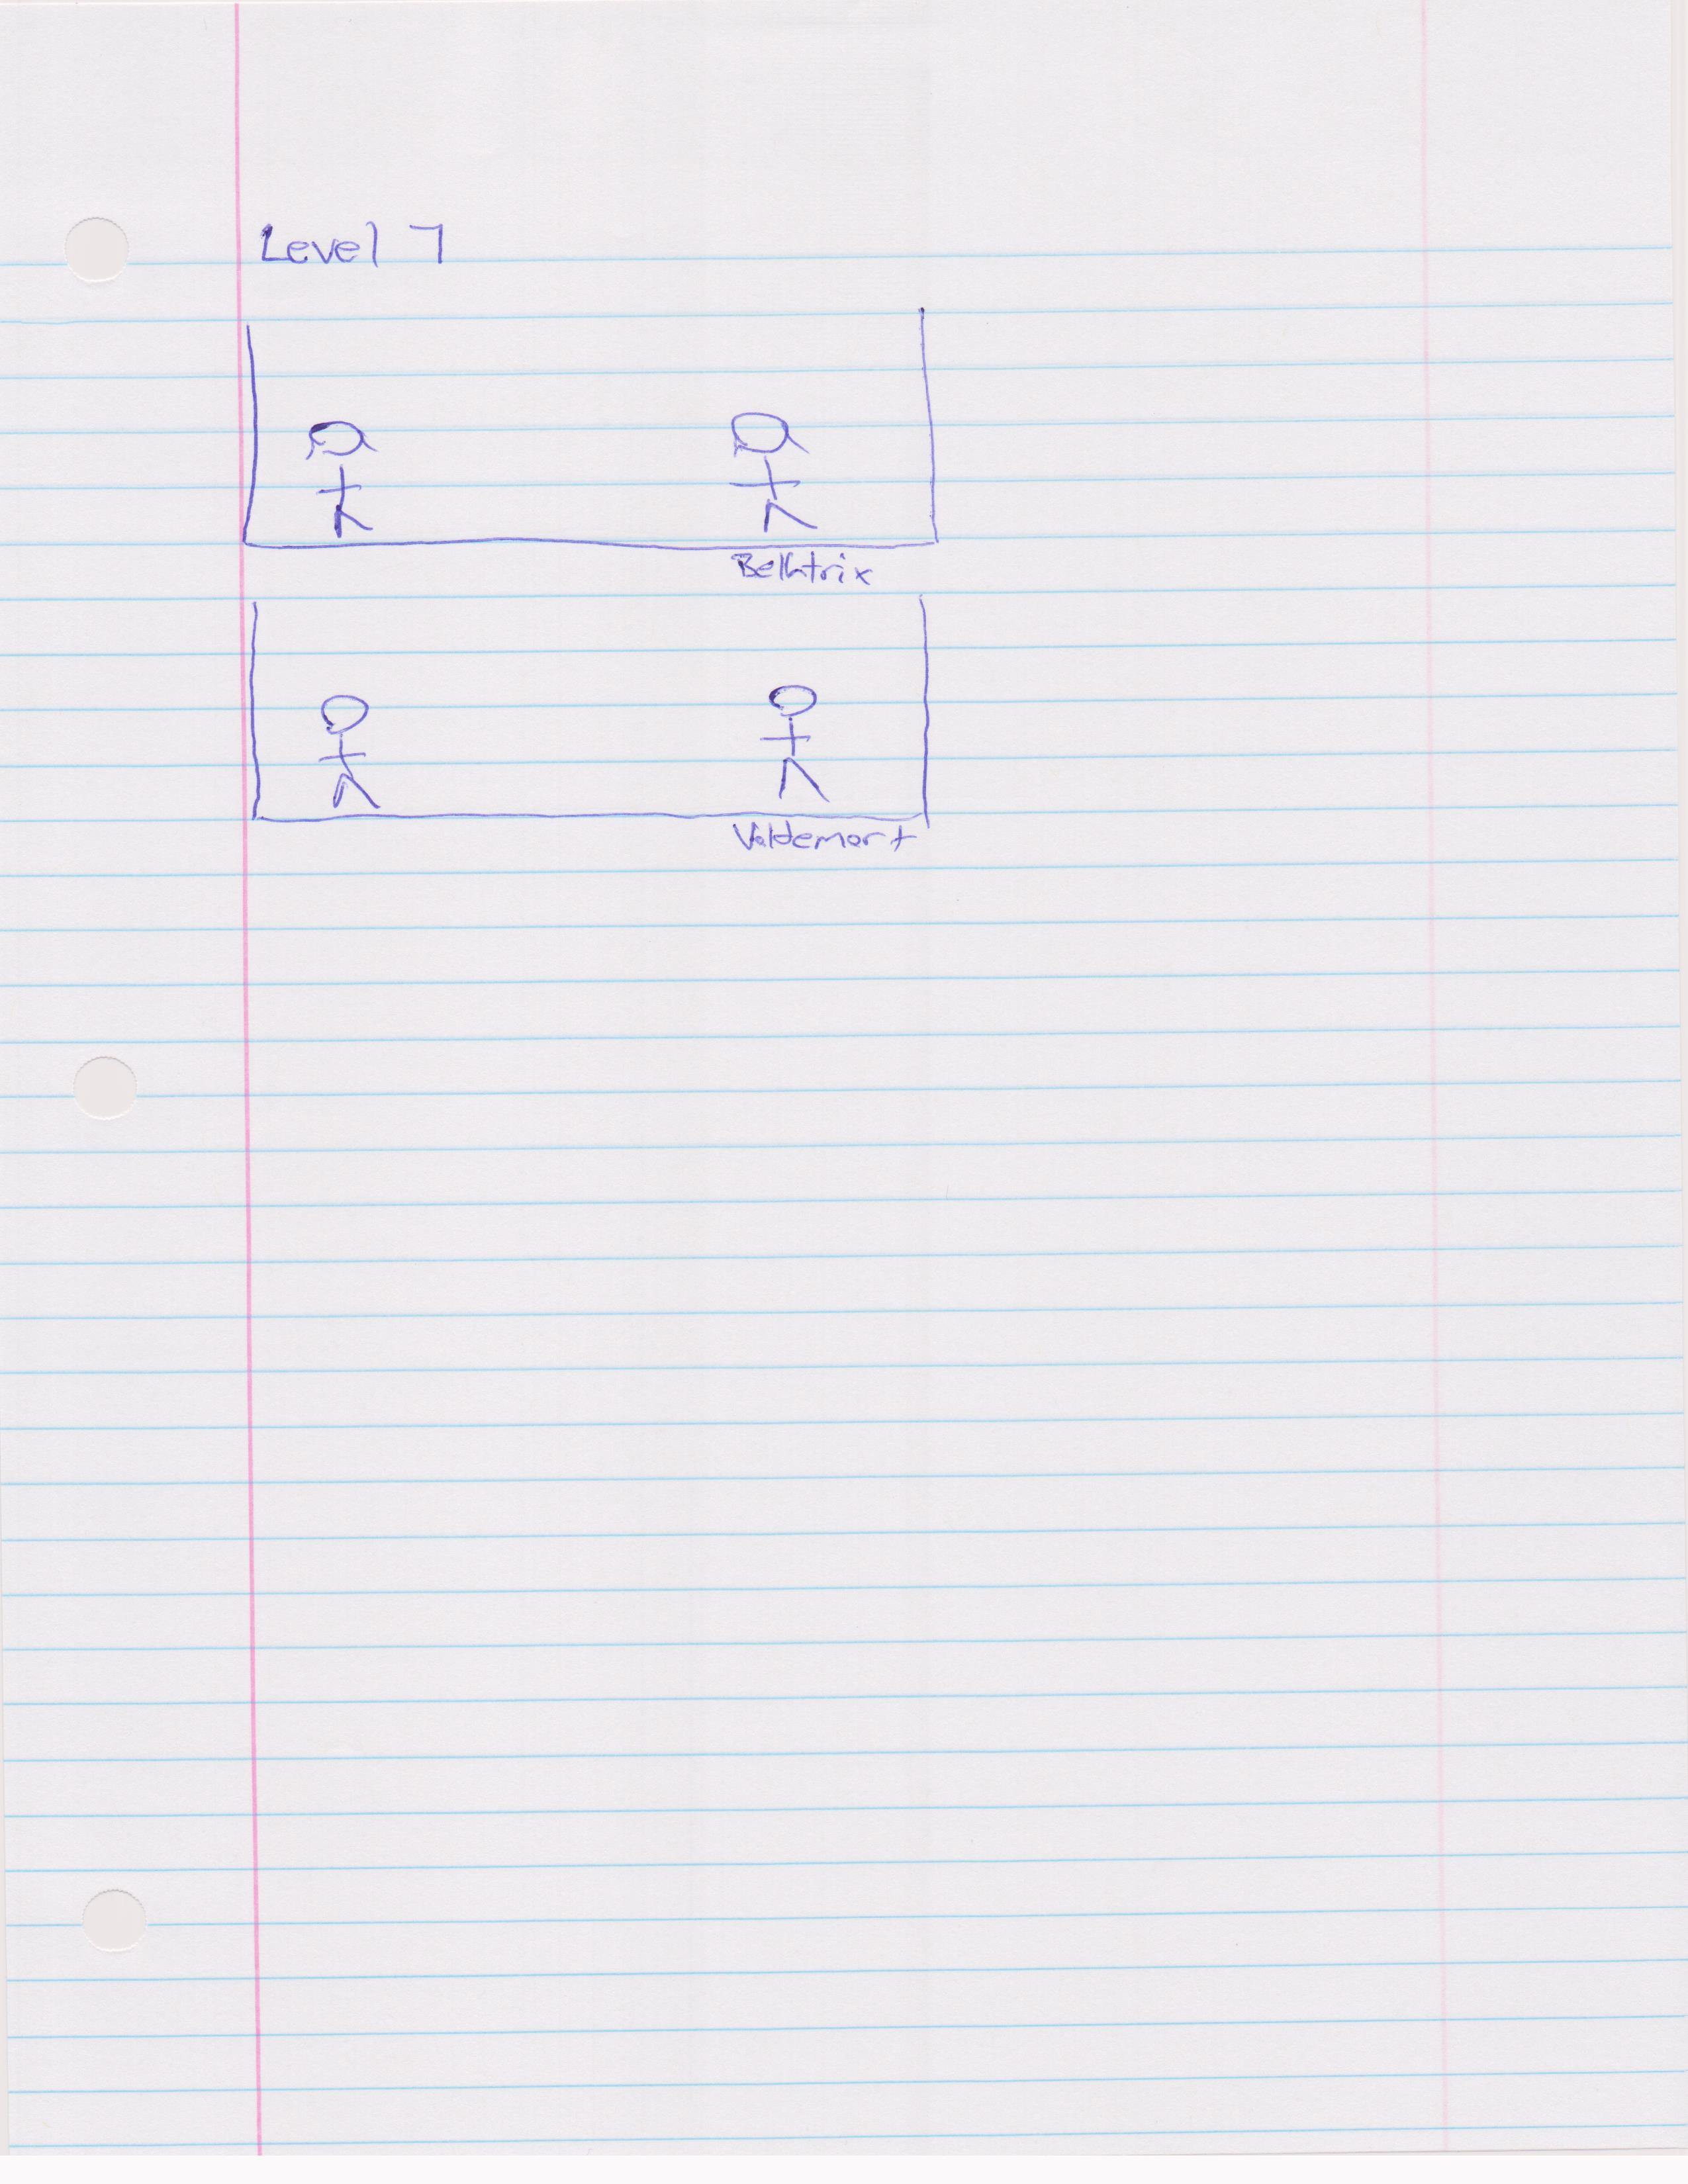 Level 7
Bellatrix
Voldemort